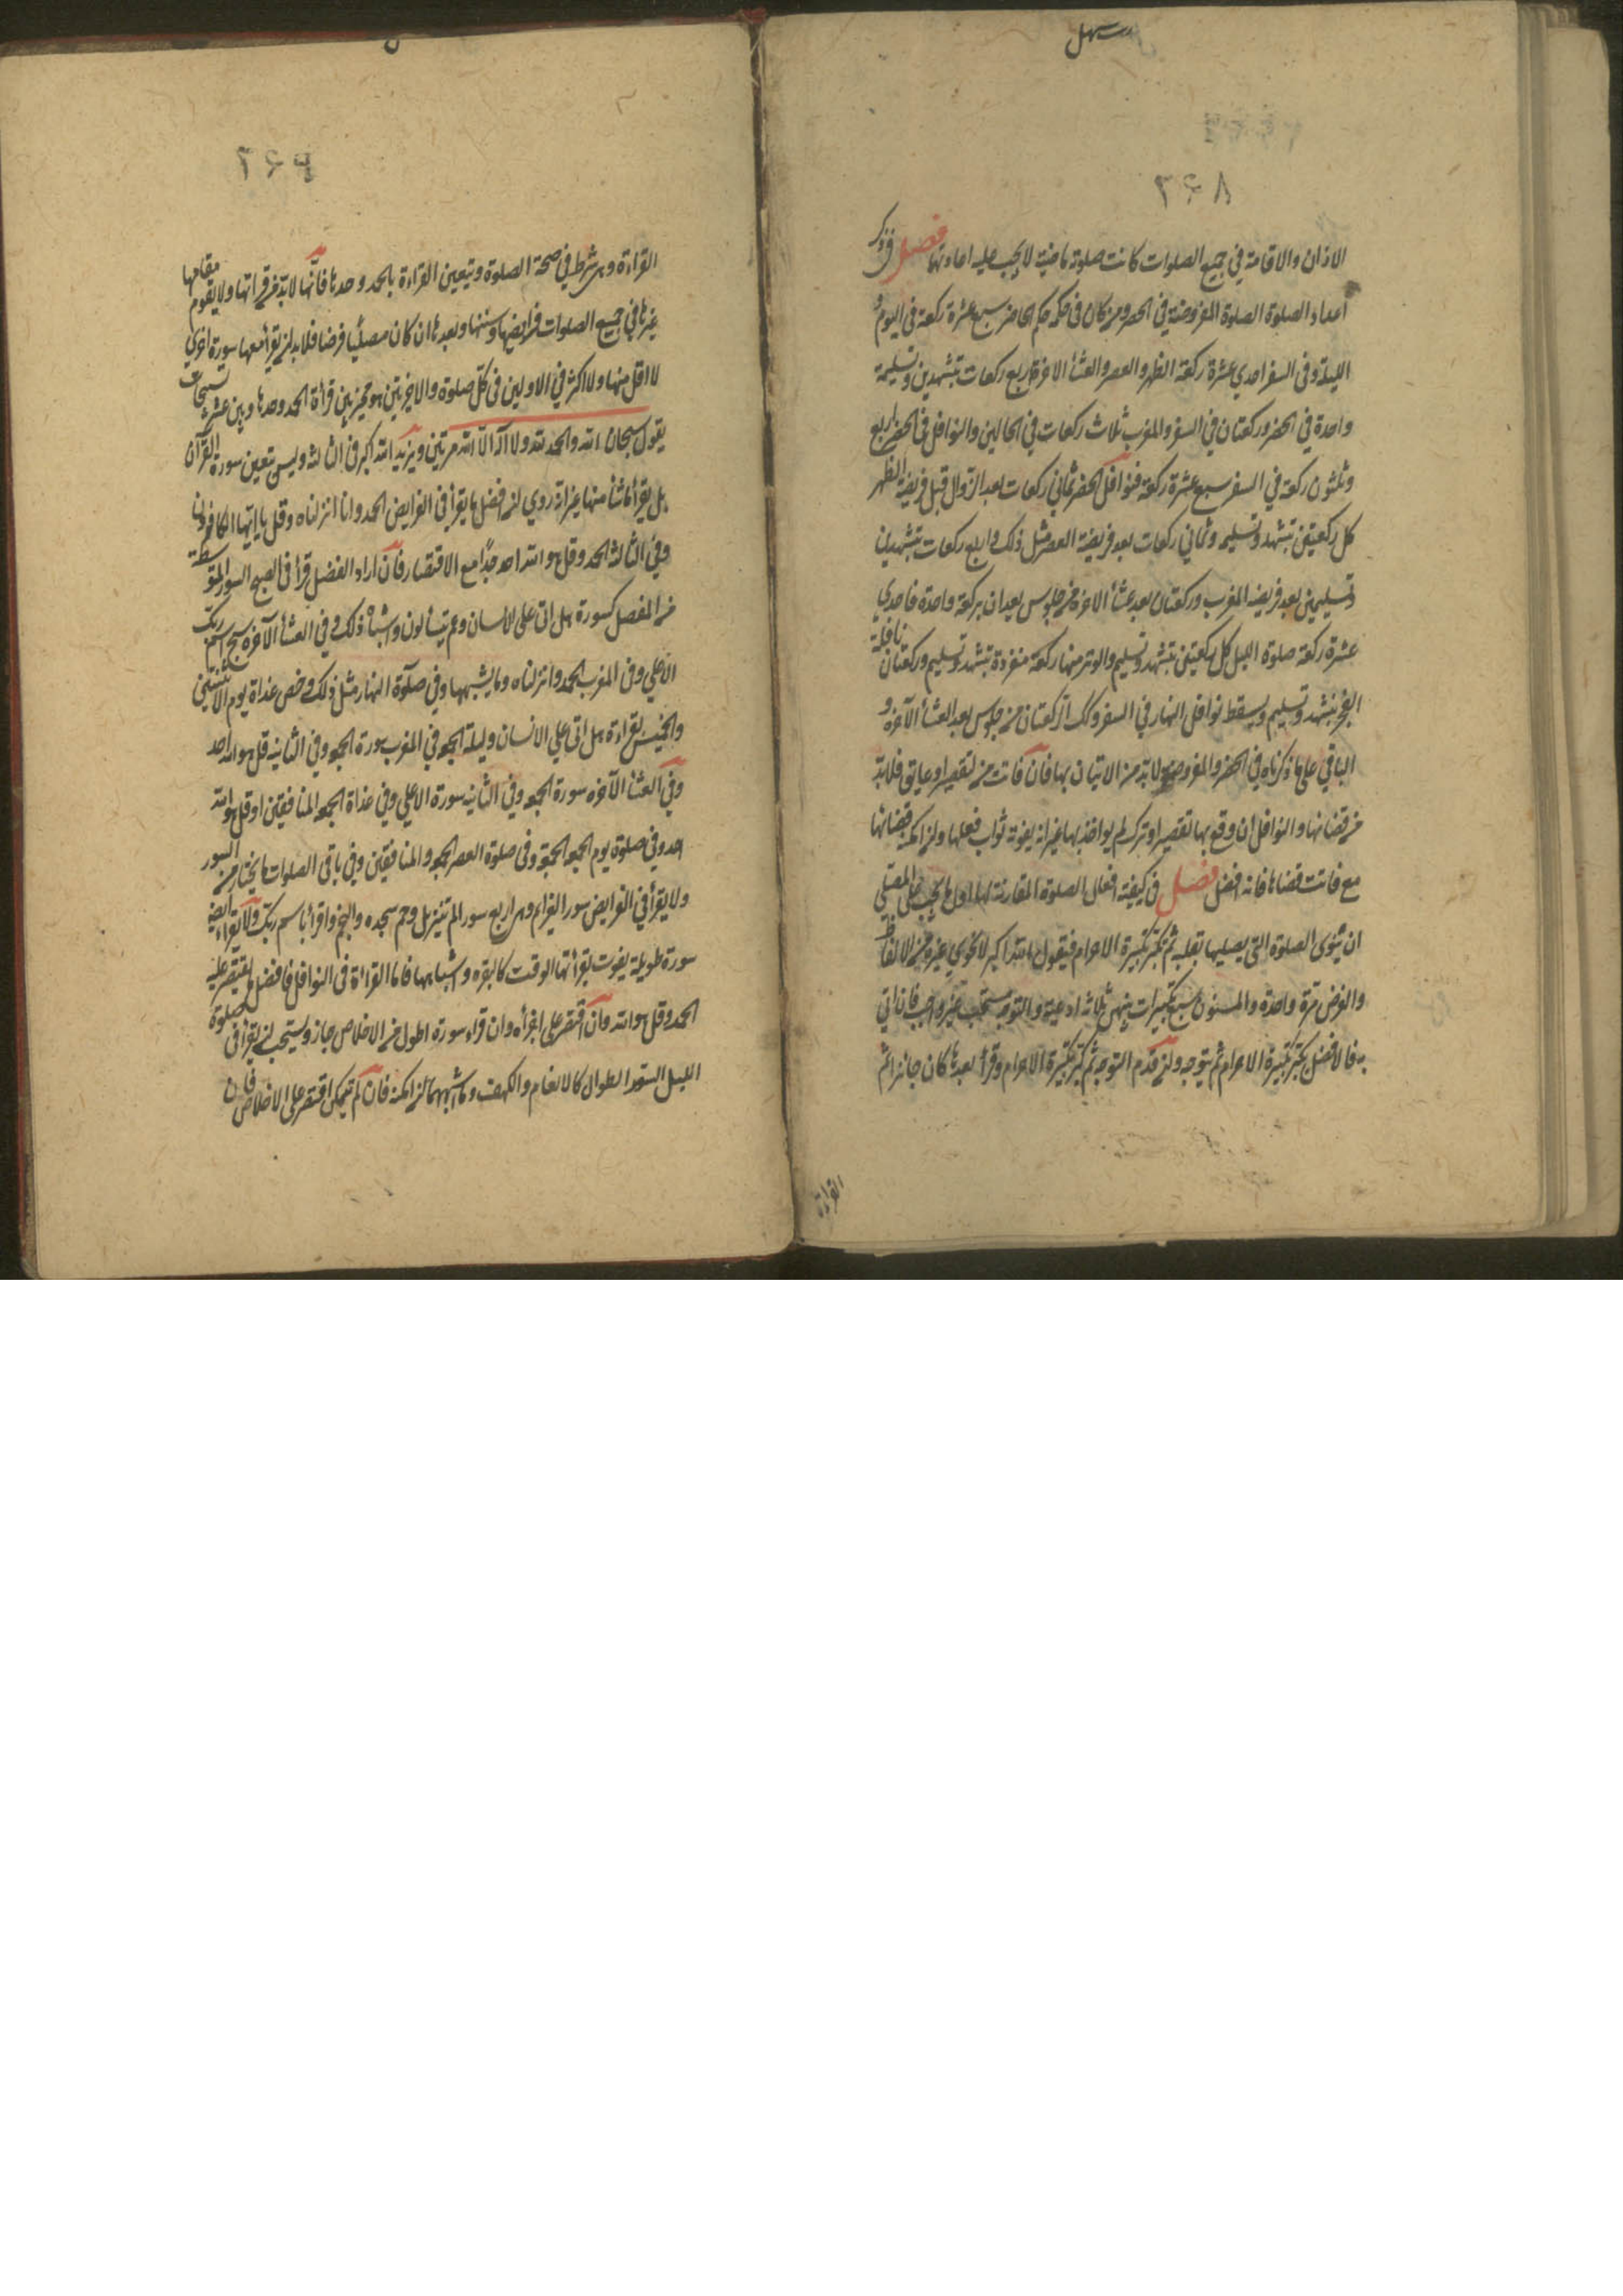 ۲۶۸
الاذان والاقامة في جميع الصلوات كانت صلوته ماضية لا يجب عليه اعادتها فصل في ذكر
اعداد الصلوة الصلوة المفروضة في الحضر ومن كان في حكمه حكم الحاضر سبع عشرة ركعة في اليوم و
الليلة وفي السفر احدي عشرة ركعة الظهر والعصر والعشأ الاخرة اربع ركعات بتشهدين وتسليمة
واحدة في الحضر وركعتان في السفر والمغرب ثلاث ركعات في الحالين والنوافل في الحضر اربع
وثلثون ركعة في السفر سبع عشرة ركعة فنوافل الحضر ثماني ركعات بعد الزوال قبل فريضة الظهر
كل ركعتين بتشهد وتسليم وثماني ركعات بعد فريضة العصر مثل ذلك واربع ركعات بتشهدين
وتسليمين بعد فريضة المغرب وركعتان بعد عشأ الاخرة من جلوس يعدان بركعة واحدة فاحدي
عشرة ركعة صلوة الليل كل ركعتين بتشهد وتسليم والوتر منها ركعة مفردة بتشهد وتسليم وركعتان نافلة
الفجر بتشهد وتسليم ويسقط نوافل النهار في السفر وكك الركعتان من جلوس بعد العشأ الآخرة و
الباقي على ما ذكرناه في الحضر والمفروضة لابد من الاتيان بها فان فاتت من تقصير او عايق فلابد
من قضائها والنوافل ان وقع بها تقصير او ترك لم يواخذ بها غير انه يفوته ثواب فعلها وان امكنه قضائها
مع فاتت قضاها فانه افضل فصل في كيفية افعال الصلوة المقارنة لها اول ما يجب على المصلي
ان ينوى الصلوة التي يصليها بقلبه ثم يكبر تكبيرة الاحرام فيقول الله اكبر لا يجزي غيره من الالفاظ
والفرض مرة واحدة والمسنون سبع تكبيرات بينهن ثلاثة ادعية والتوجه مستحب غير واجب فان اتي
به فالافضل يكبر تكبيرة الاحرام ثم يتوجه وان قدم التوجه ثم كبر تكبيرة الاحرام وقرأ بعدها كان جائزا ثم
القراءة
۲۶۹
القراءة وهي شرط في صحة الصلوة ويتعين القراءة بالحمد وحدها فانها لابد من قراتها ولا يقوم مقامها
غيرها في جميع الصلوات فرايضها وسننها وبعدها ان كان مصليا فرضا فلابد ان يقرأ معها سورة اخري
لا اقل منها ولا اكثر في الاولين في كل صلوة والاخيرتين هو مخير بين قرأة الحمد وحدها وبين عشر تسبيحات
يقول سبحان الله والحمد لله ولا اله الا الله مرتين ويزيد الله اكبر في الثالثه وليس تعين سورة القرآن
بل يقرأ ماشأ منها غير انه روي ان افضل ما يقرأ في الفرايض الحمد وانا انزلناه وقل يا ايها الكافرون
وفي الثالثة الحمد وقل هو الله احد جدا مع الاقتصار فان اراد الفضل قرأ في الصبح السور المتوسطة
من المفصل كسورة هل اتى على الانسان وعم يتسألون واشباه ذلك وفي العشأ الآخرة سبح اسم ربك
الاعلي وفي المغرب الحمد وانزلناه وما يشبهها وفي صلوة النهار مثل ذلك وخص غداة يوم الاثنين
والخميس بقراءة هل اتى علي الانسان وليلة الجمعه في المغرب سورة الجمعه وفي الثانيه قل هو الله احد
وفي العشأ الآخره سورة الجمعه وفي الثانيه سورة الاعلي وفي غداة الجمعه المنافقين او قل هو الله
احد وفي صلوة يوم الجمعه الجمعة وفي صلوة العصر الجمعه والمنافقين وفي باقي الصلوات ما يختار من السور
ولا يقرأ في الفرايض سور العزايم وهي اربع سور الم تنزيل وحم سجده والنجم واقرأ باسم ربك ولا يقراء ايضا
سورة طويلة يفوت بقرأتها الوقت كالبقره واشباهها فاما القراءة في النوافل فافضل ما يقتصر عليه
الحمد وقل هو الله وان اقتصر على اجزأه وان قراء سورة اطول من الاخلاص جاز ويستحب ان يقرأ في صلوة
الليل السور الطوال كالانعام والكهف وما اشبههما ان امكنه فان لم يتمكن اقتصر على الاخلاص فان